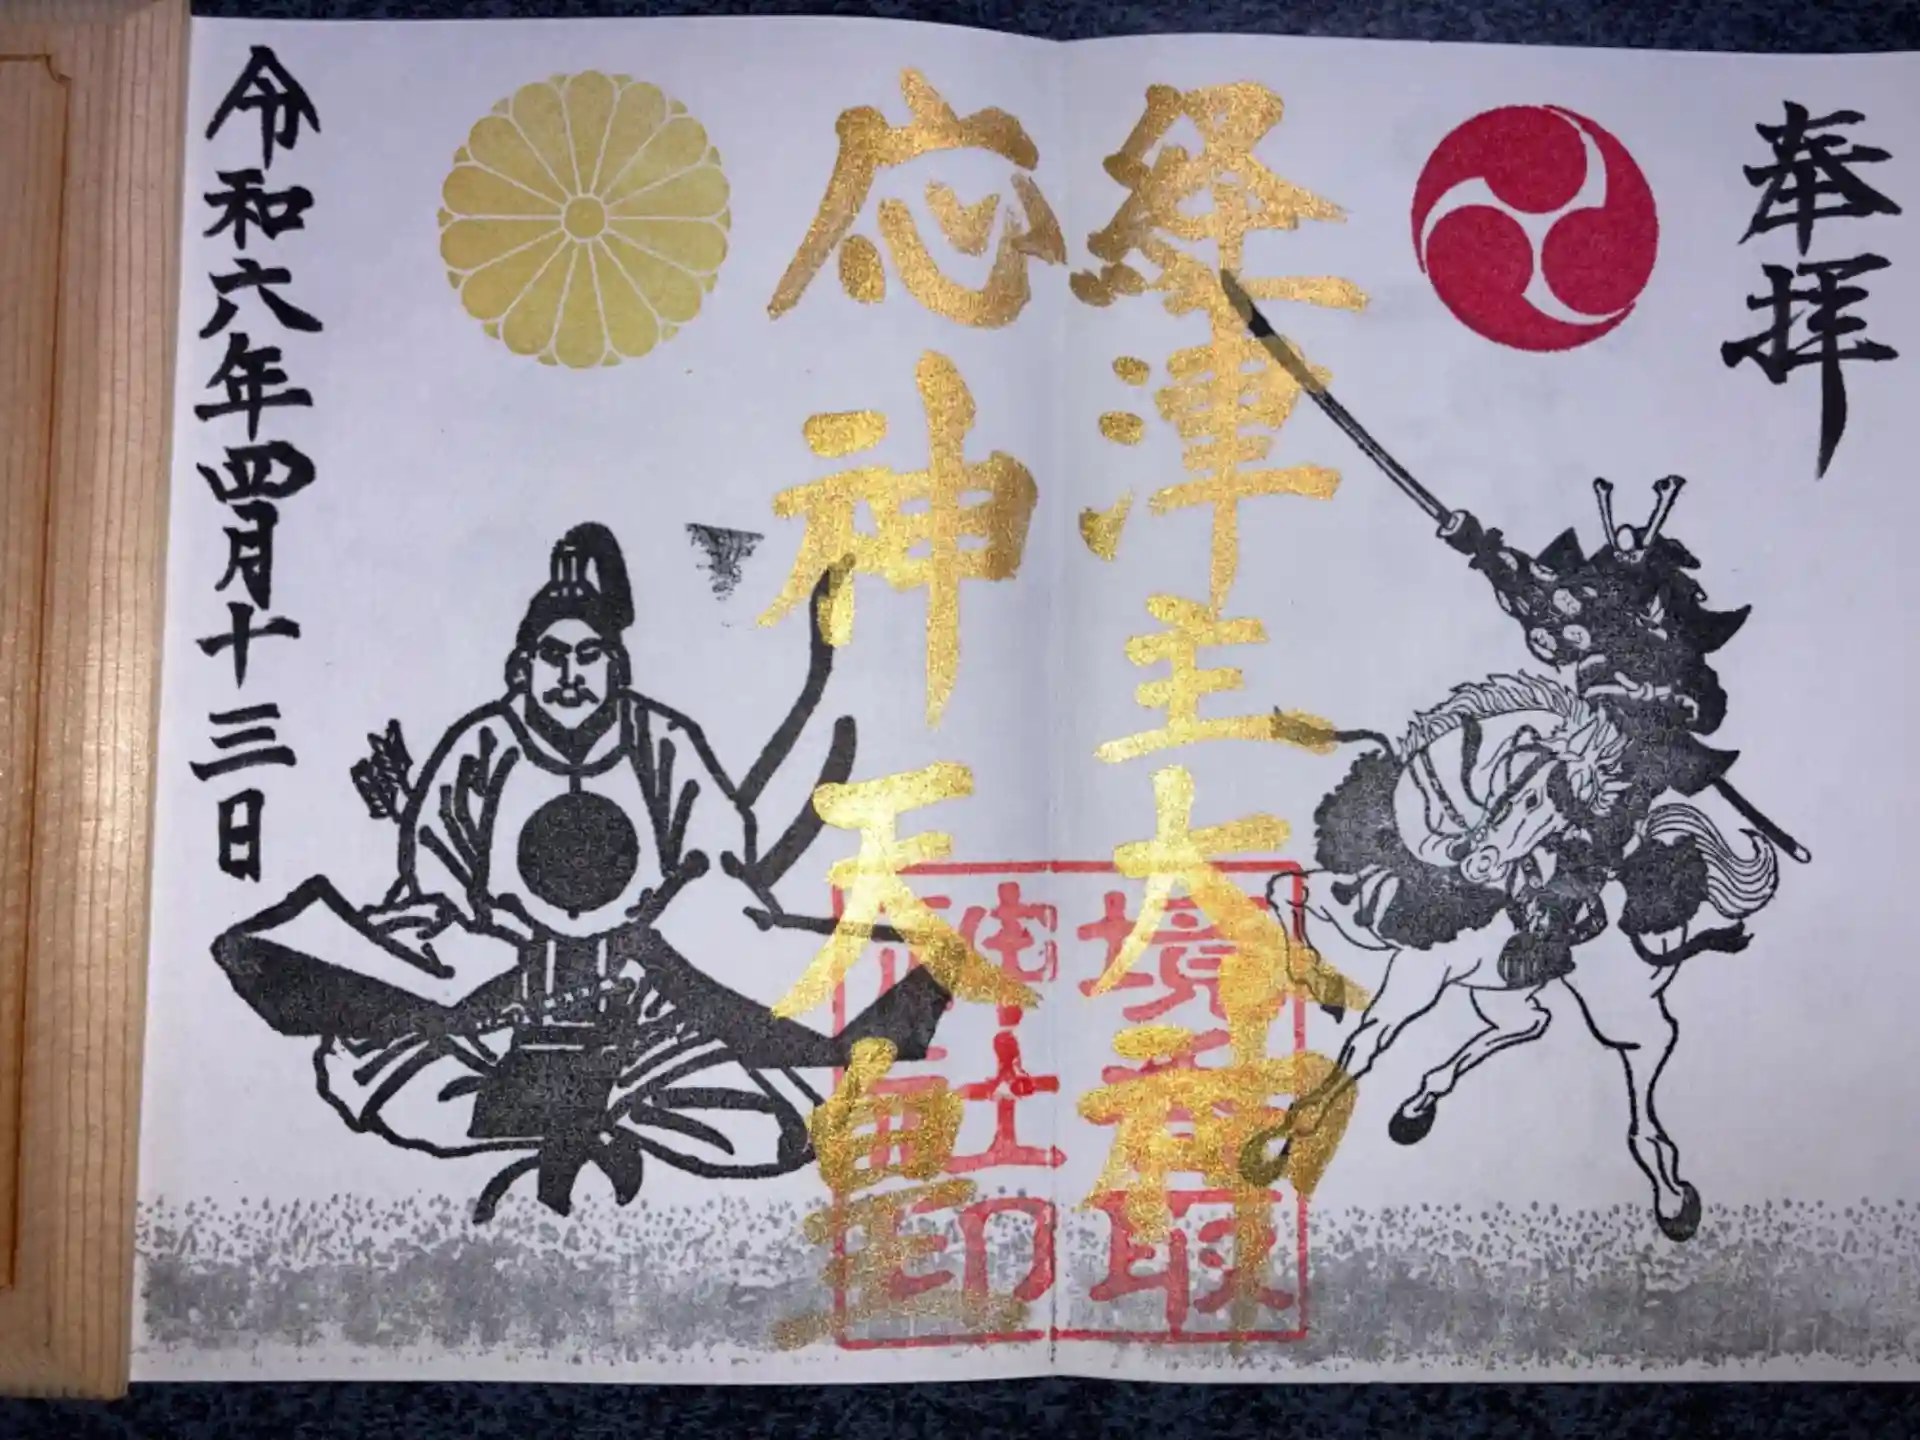 奉拝
経津主大神
応神天皇
境香取
神社印
令和六年四月十三日